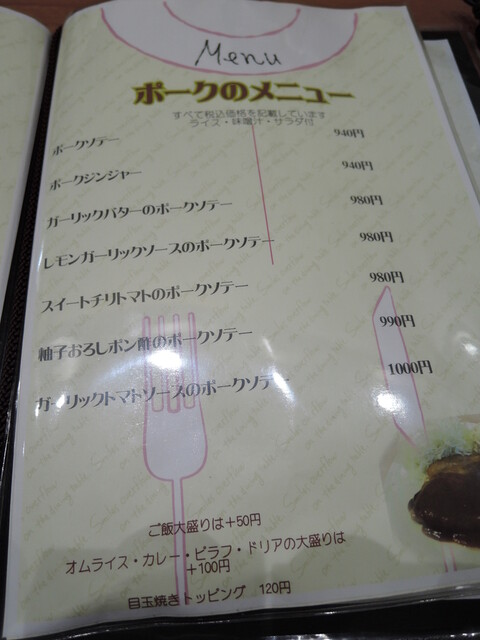 Menu
ポークのメニュー
すべて税込価格を記載しています
ライス・味噌汁・サラダ付
ポークソテー 940円
ポークジンジャー 940円
ガーリックバターのポークソテー 980円
レモンガーリックソースのポークソテー 980円
スイートチリトマトのポークソテー 980円
柚子おろしポン酢のポークソテー 990円
ガーリックトマトソースのポークソテー 1000円
ご飯大盛りは+50円
オムライス・カレー・ピラフ・ドリアの大盛りは
+100円
目玉焼きトッピング 120円